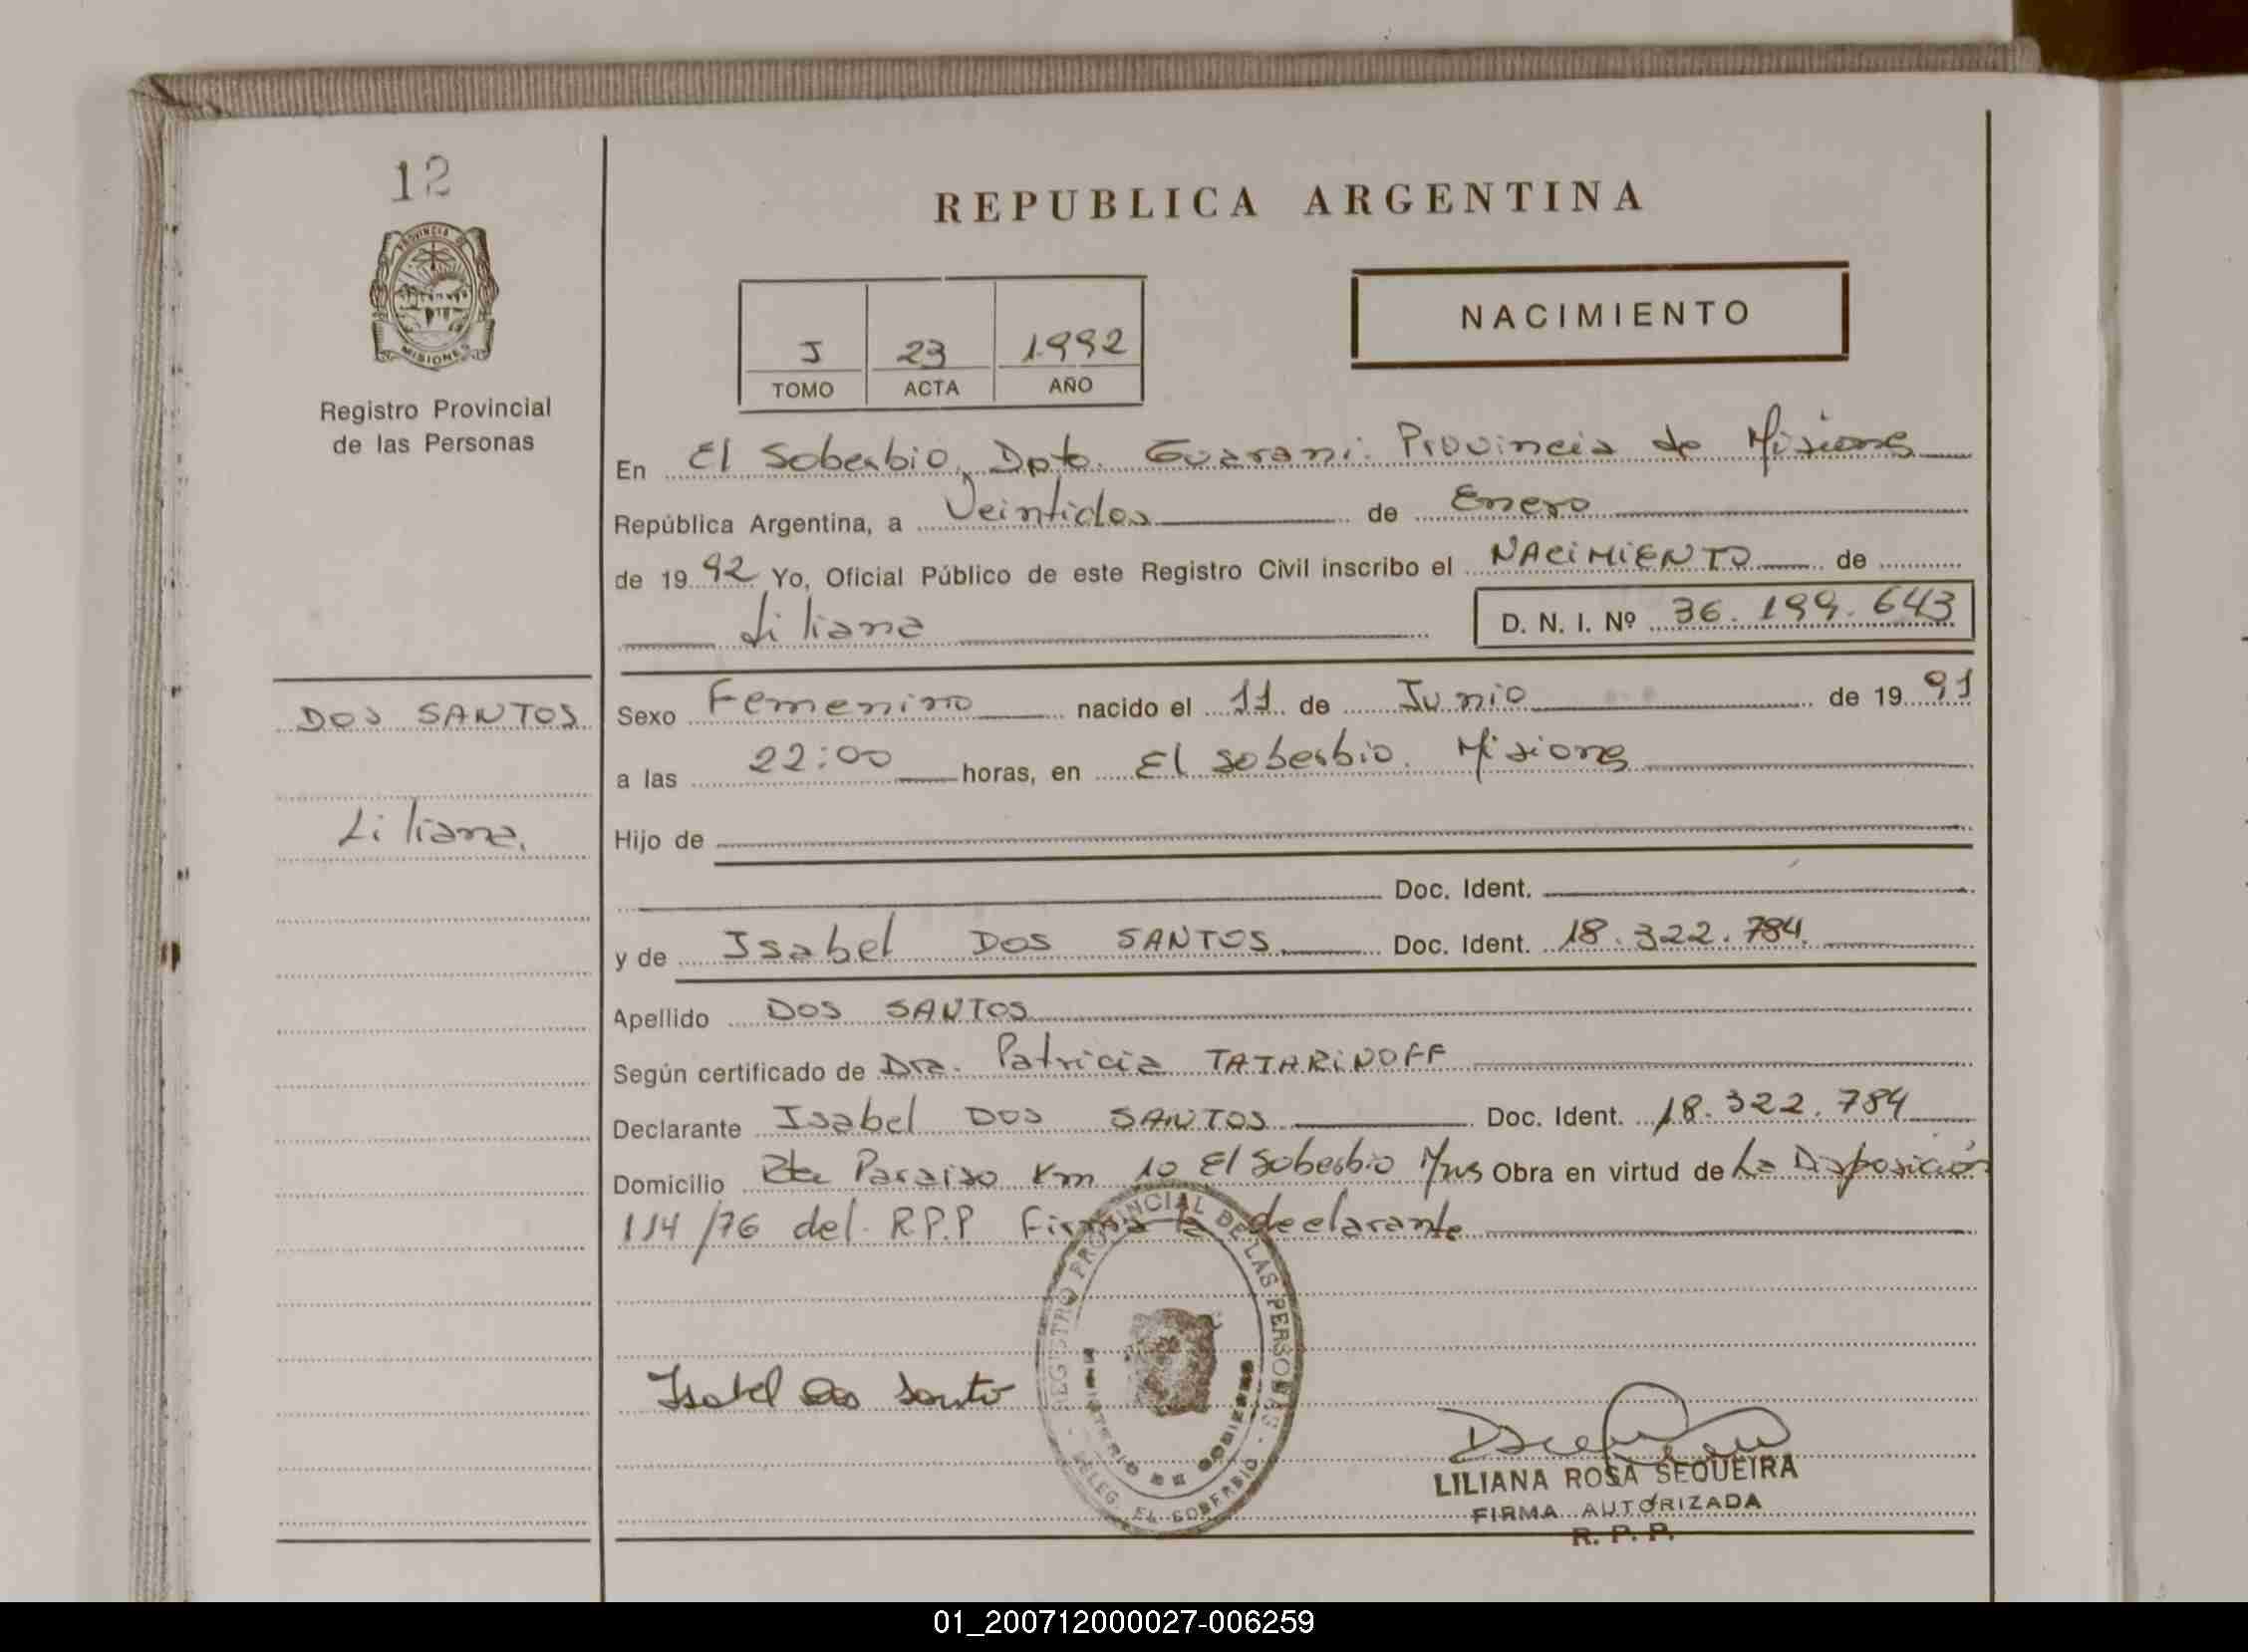 12
PROVINCIA DE
MISIONES
Registro Provincial
de las Personas
REPUBLICA ARGENTINA
J 23 1992
TOMO ACTA AÑO
NACIMIENTO
En El Soberbio, Dpto. Guarani. Provincia de Misiones
República Argentina, a Veintidos de Enero
de 19 92 Yo, Oficial Público de este Registro Civil inscribo el NACIMIENTO de
Liliana
D. N. I. Nº 36.199.643
DOS SANTOS
Liliana.
Sexo Femenino nacido el 11 de Junio de 19 91
a las 22:00 horas, en El Soberbio. Misiones
Hijo de
Doc. Ident.
y de Isabel DOS SANTOS. Doc. Ident. 18.322.784.
Apellido DOS SANTOS
Según certificado de Dra. Patricia TATARINOFF
Declarante Isabel DOS SANTOS Doc. Ident. 18.322.784
Domicilio Paraiso Km 10 El Soberbio Mns Obra en virtud de La Disposición
114/76 del R.P.P Firma la declarante
REGISTRO PROVINCIAL DE LAS PERSONAS
MINISTERIO DE GOBIERNO
DELEG. EL SOBERBIO
Isabel Dos Santo
LILIANA ROSA SEQUEIRA
FIRMA AUTORIZADA
R. P. P.
01_200712000027-006259